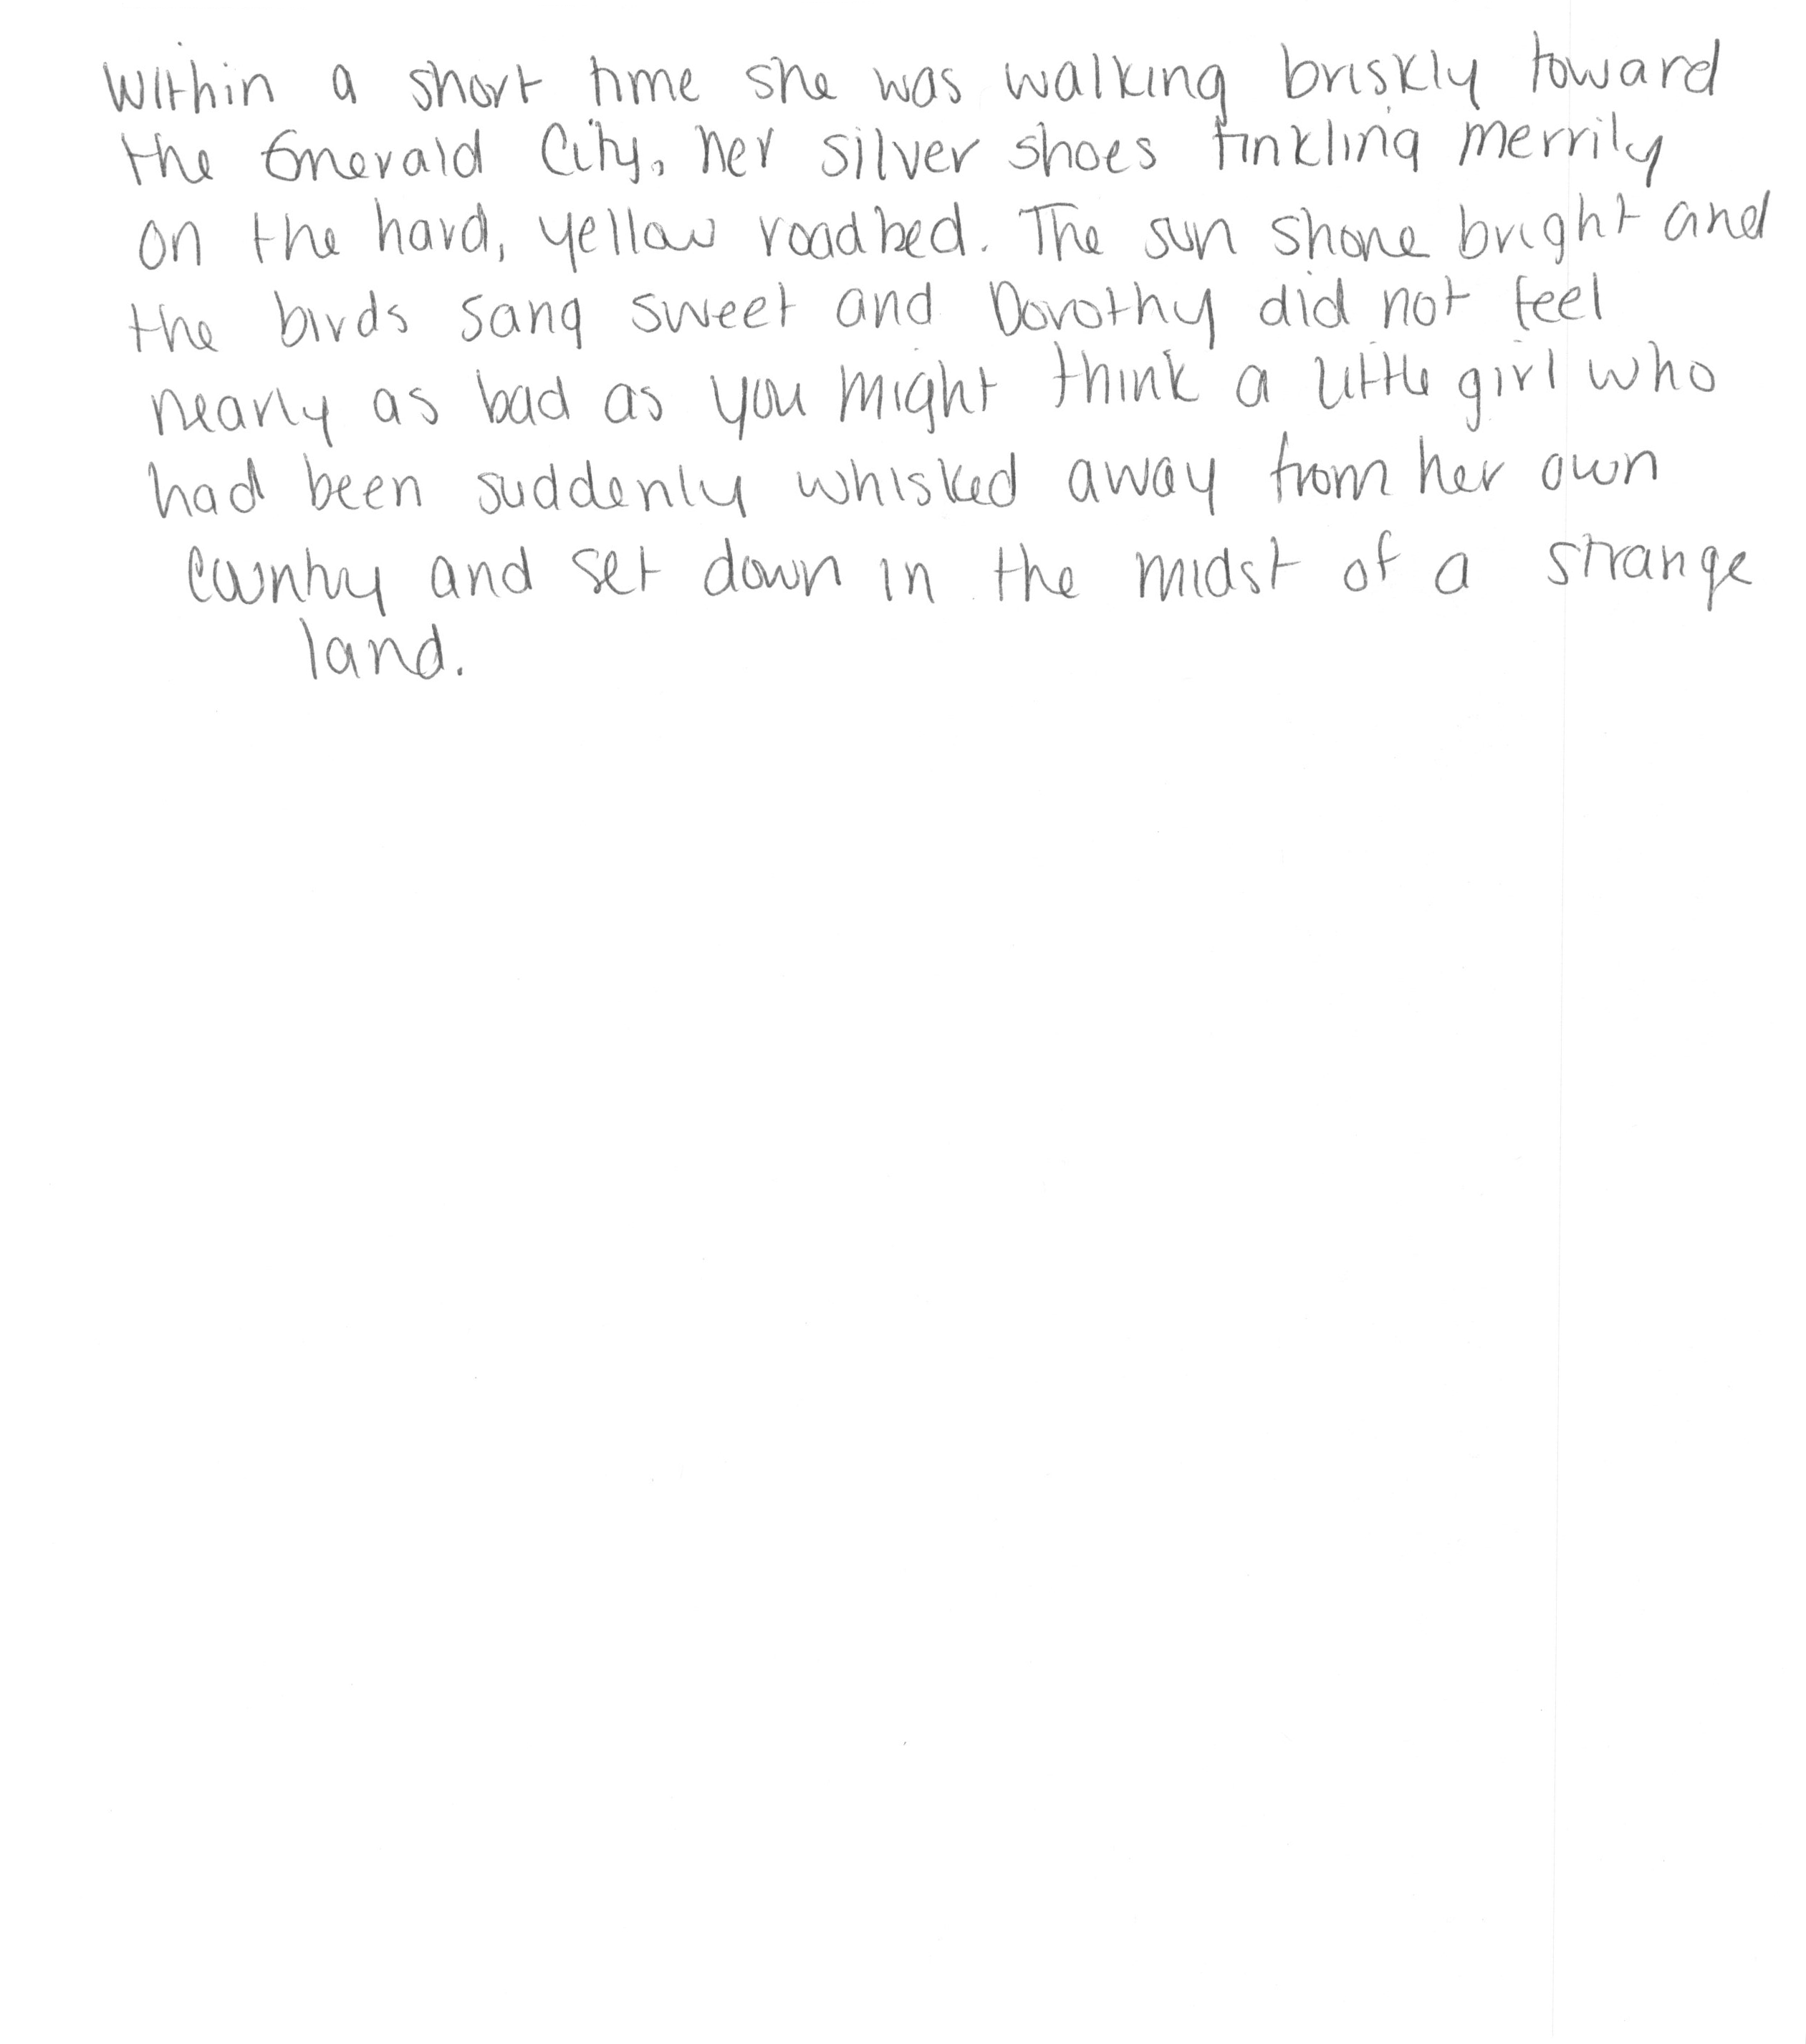 Within a short time she was walking briskly toward
the Emerald City, her silver shoes tinkling merrily
on the hard, yellow roadbed. The sun shone bright and
the birds sang sweet and Dorothy did not feel
nearly as bad as you might think a little girl who
had been suddenly whisked away from her own
country and set down in the midst of a strange
land.